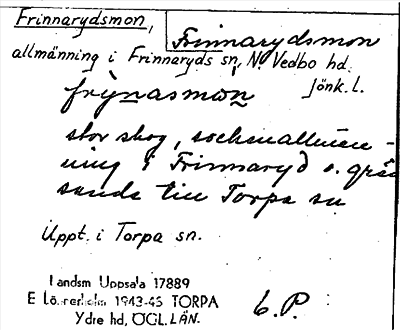 Frinnarydsmon,
Frinnarydsmon
allmänning i Frinnaryds sn, N. Vedbo hd.
Jönk. L.
frỳnasmωn
stor skog, sockenallmän-
ning i Frinnaryd o. grän
sande till Torpa sn
Uppt. i Torpa sn.
Landsm Uppsala 17889
E 1943-45 TORPA
Ydre hd, ÖGL. LÄN.
G.P.